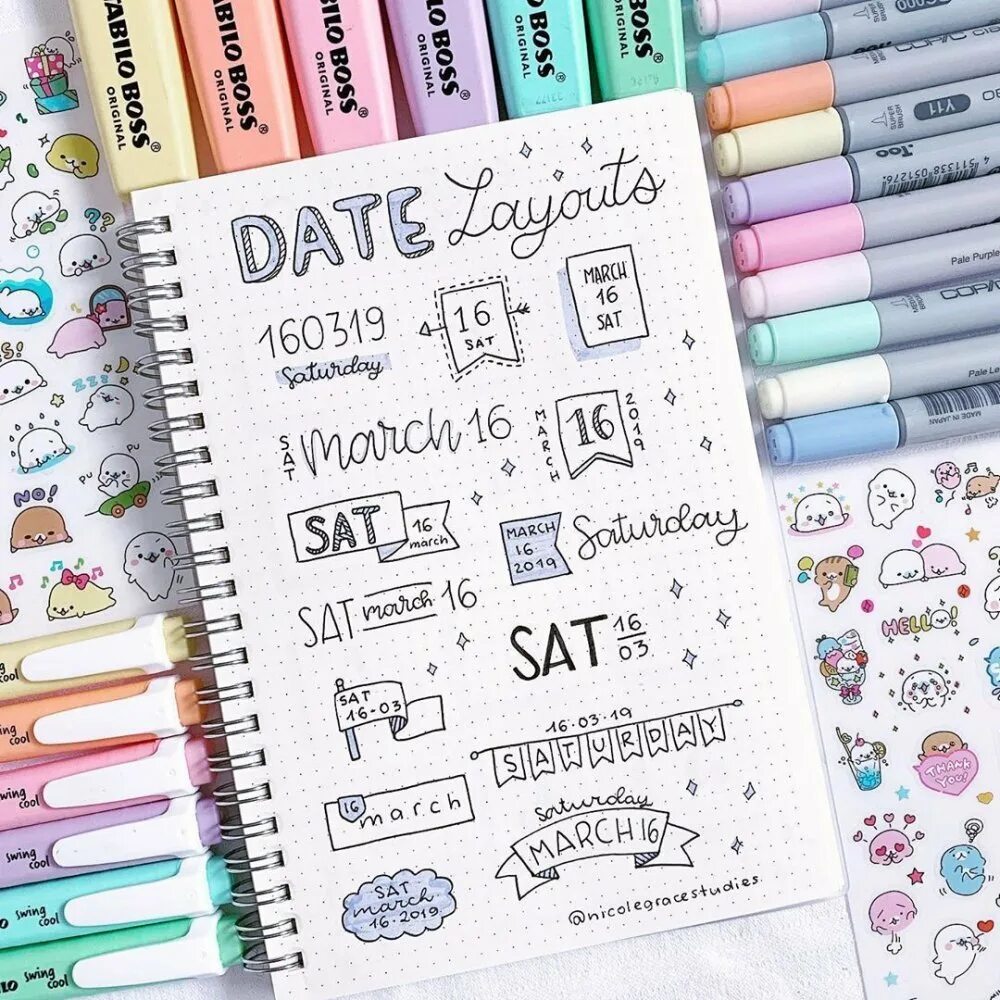 STABILO BOSS
ORIGINAL
STABILO BOSS
ORIGINAL
STABILO BOSS
ORIGINAL
STABILO BOSS
ORIGINAL
STABILO BOSS
ORIGINAL
STABILO BOSS
ORIGINAL
DATE Layouts
160319
Saturday
16
SAT
MARCH
16
SAT
SAT
march 16
MARCH
16
2019
SAT
16
march
MARCH
16
2019
Saturday
SAT march 16
SAT 16
03
SAT
16-03
16·03·19
SATURDAY
16
march
saturday
MARCH 16
SAT
march
16·2019
@nicolegracestudies
Y11
SUPER
BRUSH
Too
4 511338 051276
Pale Purple
COPIC
MADE IN JAPAN
NO!
PU
PU
HELLO!
THANK
YOU!
swing
cool
swing
cool
swing
cool
swing
cool
swing
cool
swing
cool